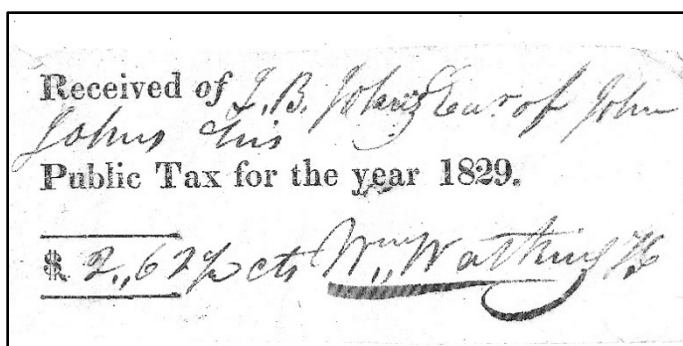 Received of J. B. Johns Exr. of John
Johns his
Public Tax for the year 1829.
$ 2,,62½ cts Wm,, Watkins